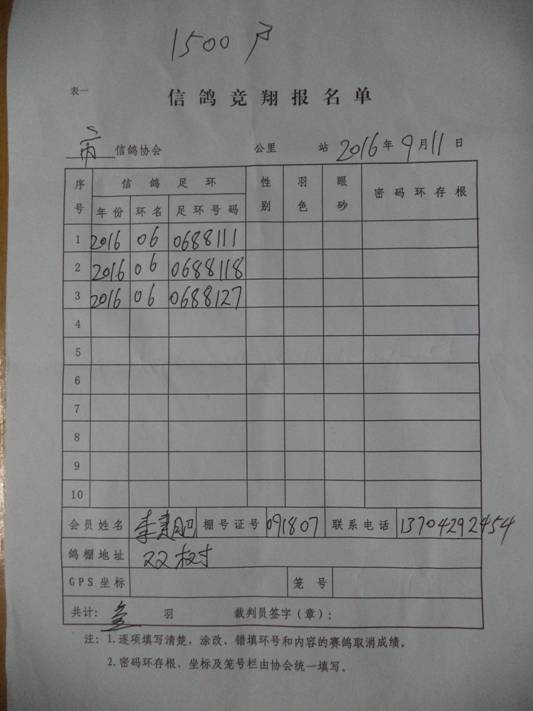 1500户
表一
信鸽竞翔报名单
市 信鸽协会 公里 站 2016年9月11日
序号 信鸽足环 性别 羽色 眼砂 密码环存根
年份 环名 足环号码
1 2016 06 0688111
2 2016 06 0688118
3 2016 06 0688127
4
5
6
7
8
9
10
会员姓名 李 棚号证号 091807 联系电话 13704292454
鸽棚地址 双树
GPS坐标 笼号
共计: 叁 羽 裁判员签字(章):
注: 1.逐项填写清楚,涂改、错填环号和内容的赛鸽取消成绩。
2.密码环存根、坐标及笼号栏由协会统一填写。